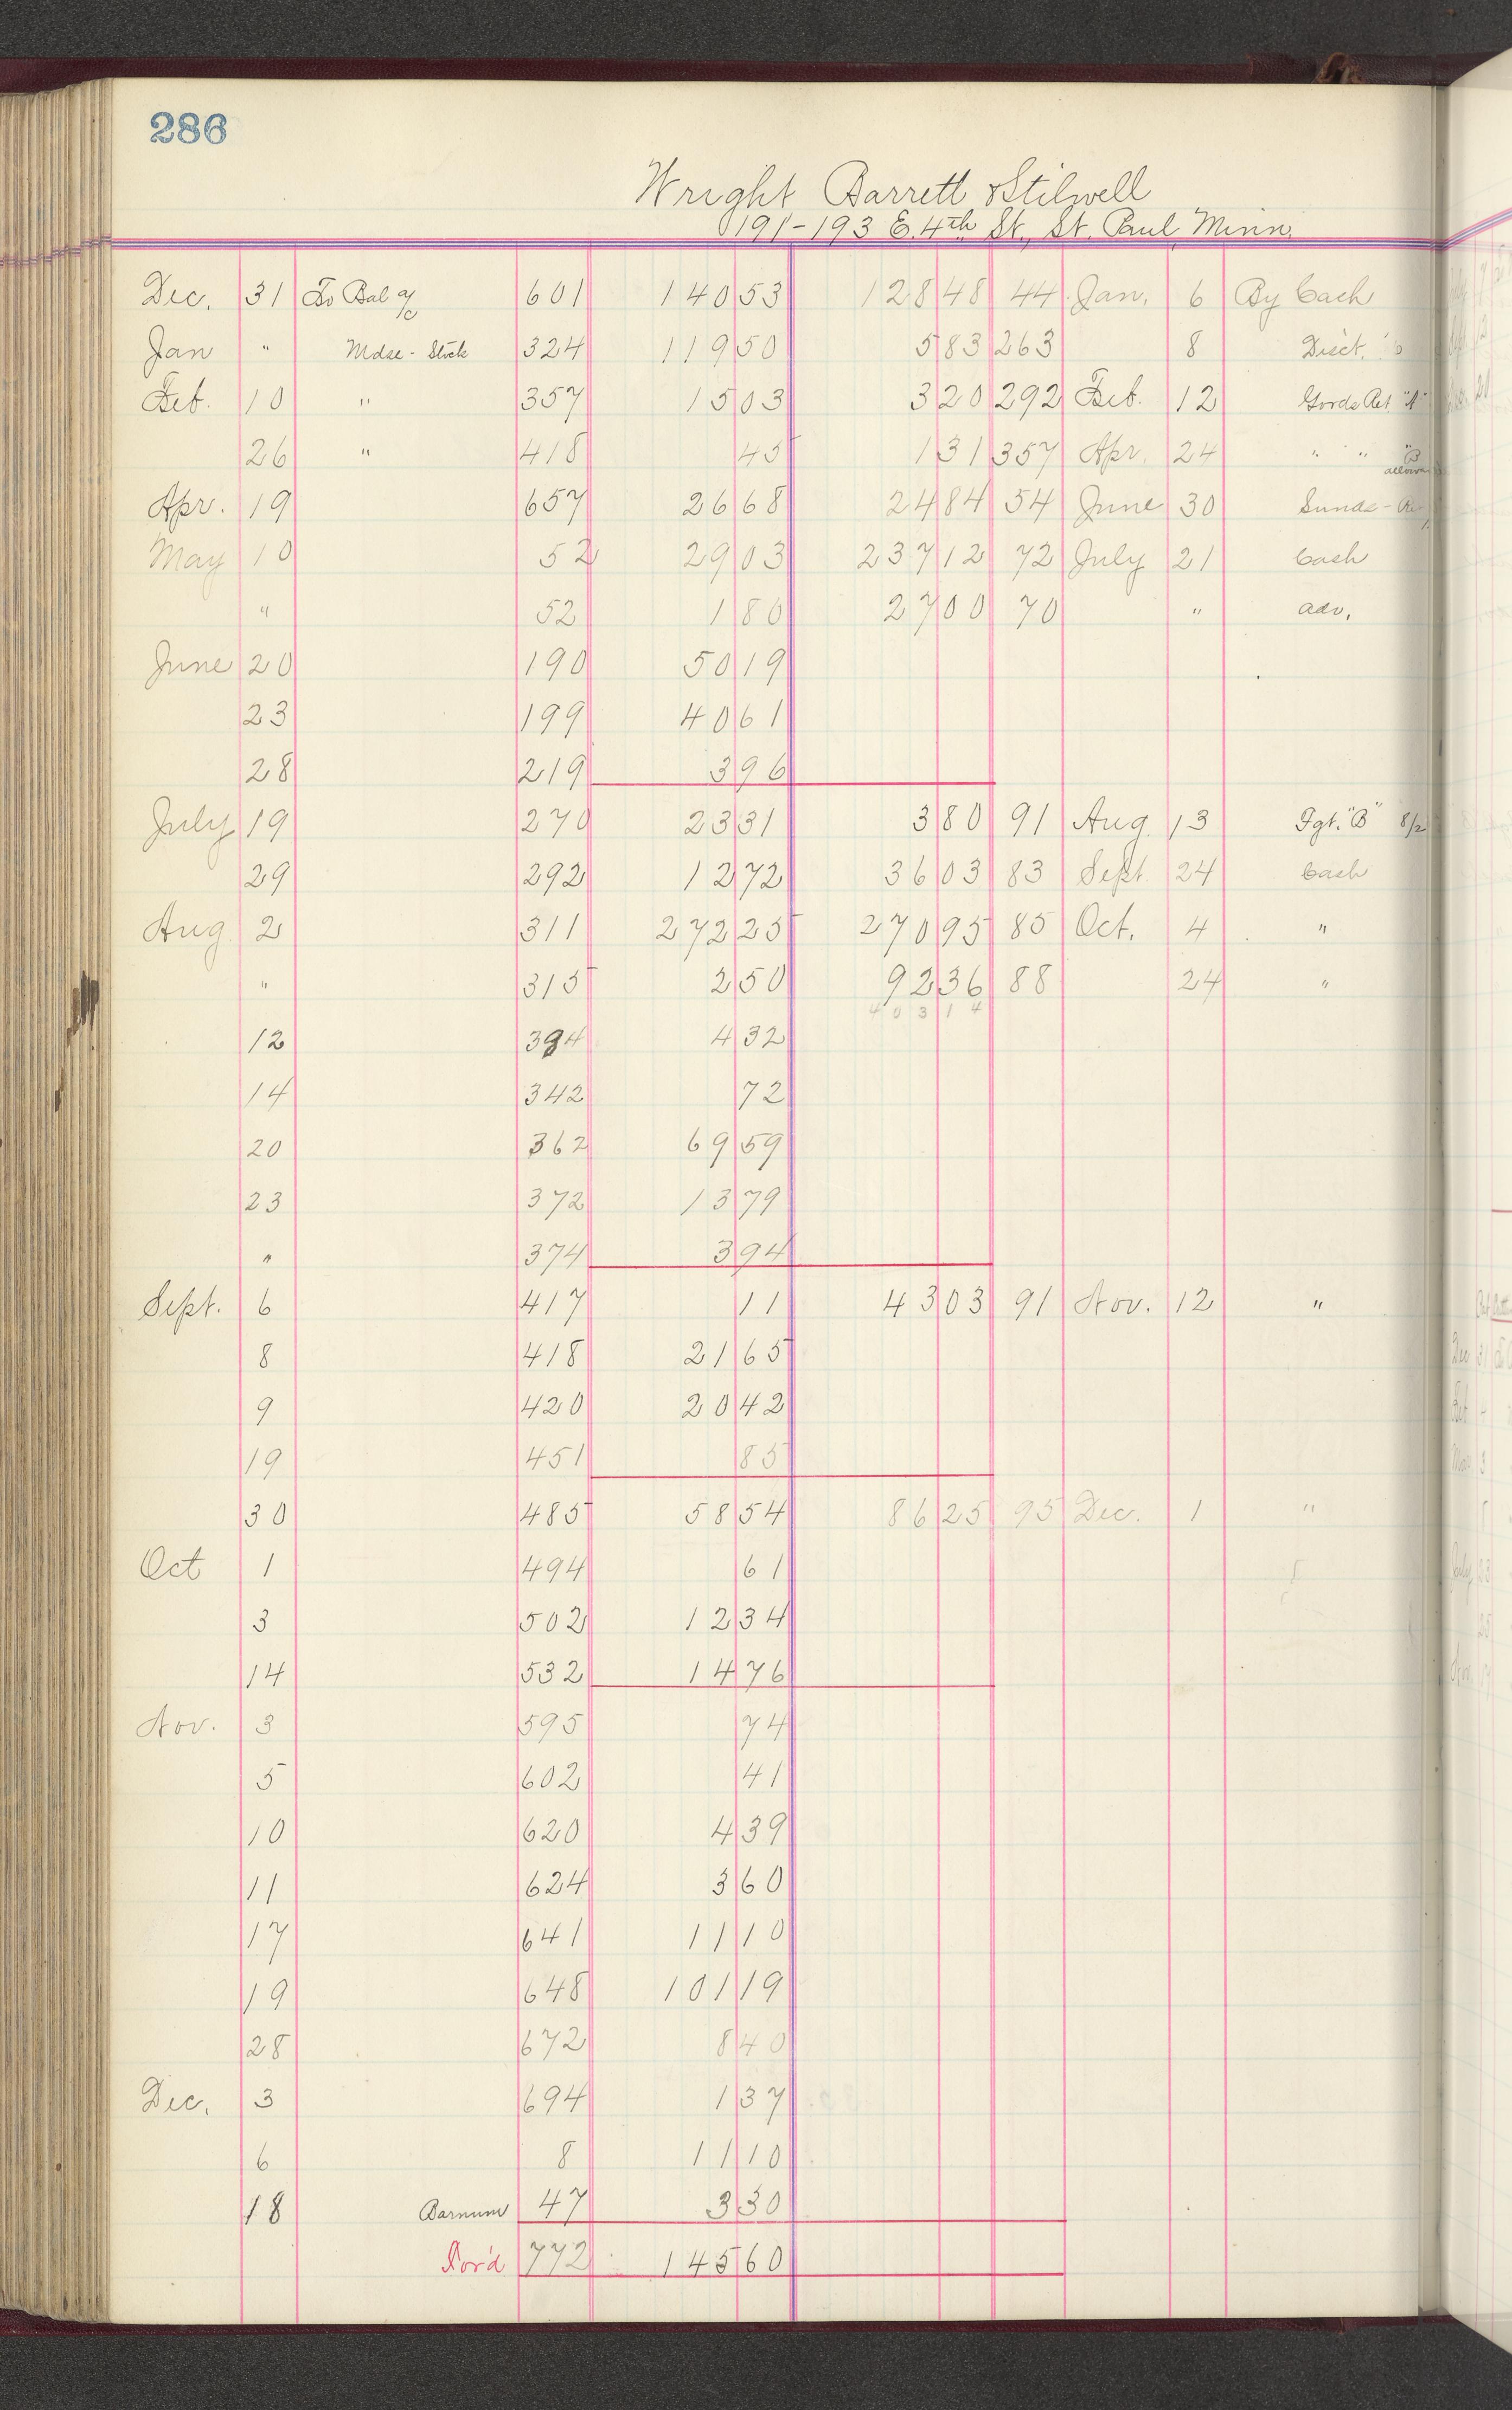 286
Wright Barrett & Stilwell
191-193 E. 4th St., St. Paul Minn.
Dec. 31 To Bal a/c 601 140 53 128 48 44 Jan. 6 By Cash
Jan " Mdse - Stock 324 119 50 5 83 263 8 Disct.
Feb. 10 " 357 15 03 3 20 292 Feb. 12 Goods Ret "A"
26 " 418 45 1 31 357 Apr. 24 " " "B
Apr. 19 657 26 68 24 84 54 June 30 Sunds -
May 10 52 29 03 237 12 72 July 21 Cash
" 52 1 80 27 00 70 " adv.
June 20 190 50 19
23 199 40 61
28 219 3 96
July 19 270 23 31 3 80 91 Aug. 13 Fgt. "B" 8/2
29 292 12 72 36 03 83 Sept. 24 Cash
Aug. 2 311 272 25 270 95 85 Oct. 4 "
" 315 2 50 92 36 88 24 "
40314
12 334 4 32
14 342 72
20 362 69 59
23 372 13 79
" 374 3 94
Sept. 6 417 11 43 03 91 Nov. 12 "
8 418 21 65
9 420 20 42
19 451 85
30 485 58 54 86 25 95 Dec. 1 "
Oct 1 494 61
3 502 12 34
14 532 14 76
Nov. 3 595 74
5 602 41
10 620 4 39
11 624 3 60
17 641 11 10
19 648 101 19
28 672 8 40
Dec. 3 694 1 37
6 8 11 10
18 Barnum 47 3 30
For'd 772 145 60